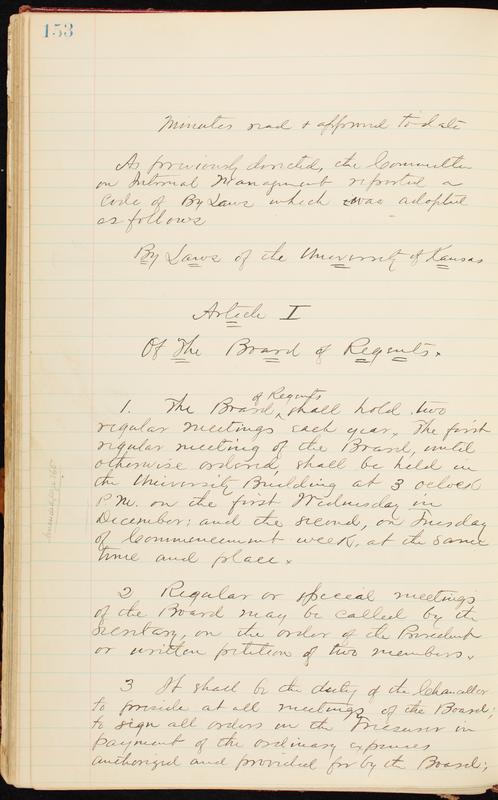 153
Minutes read & approved to date
As previously directed, the Committee
on Internal Management reported a
Code of By Laws which was adopted
as follows
By Laws of the University of Kansas
Article I
Of The Board of Regents.
of Regents
1. The Board shall hold two
regular meetings each year. The first
regular meeting of the Board, until
otherwise ordered, shall be held in
the University Building at 3 oclock
P.M. on the first Wednesday in
December; and the second, on Tuesday
of Commencement week, at the same
time and place.
2, Regular or special meetings
of the Board may be called by the
Secretary, on the order of the President
or written petition of two members.
3 It shall be the duty of the Chancellor
to preside at all meetings of the Board;
to sign all orders on the Treasurer in
payment of the ordinary expenses
authorized and provided for by the Board;